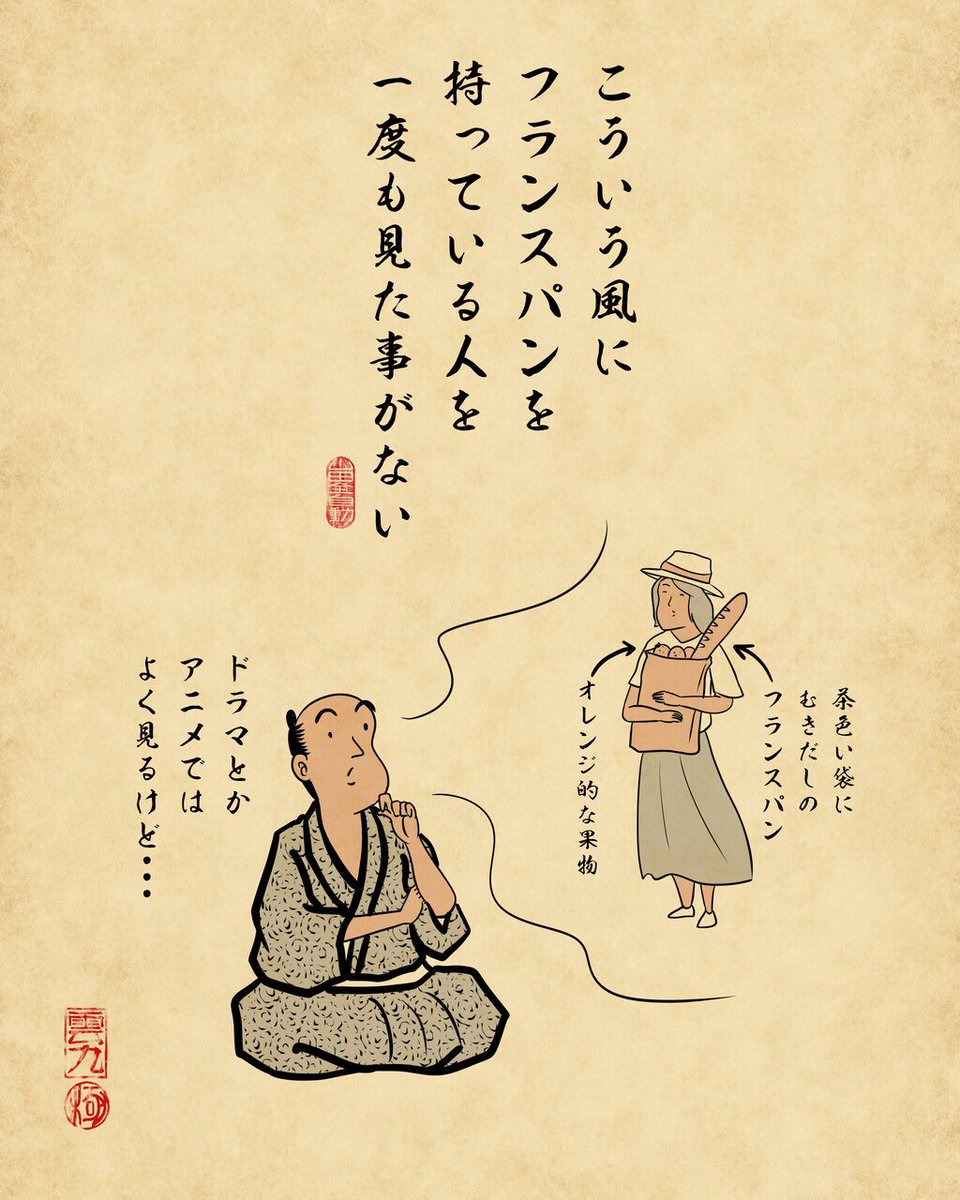 こういう風に
フランスパンを
持っている人を
一度も見た事がない
茶色い袋に
むきだしの
フランスパン
オレンジ的な果物
ドラマとか
アニメでは
よく見るけど・・・